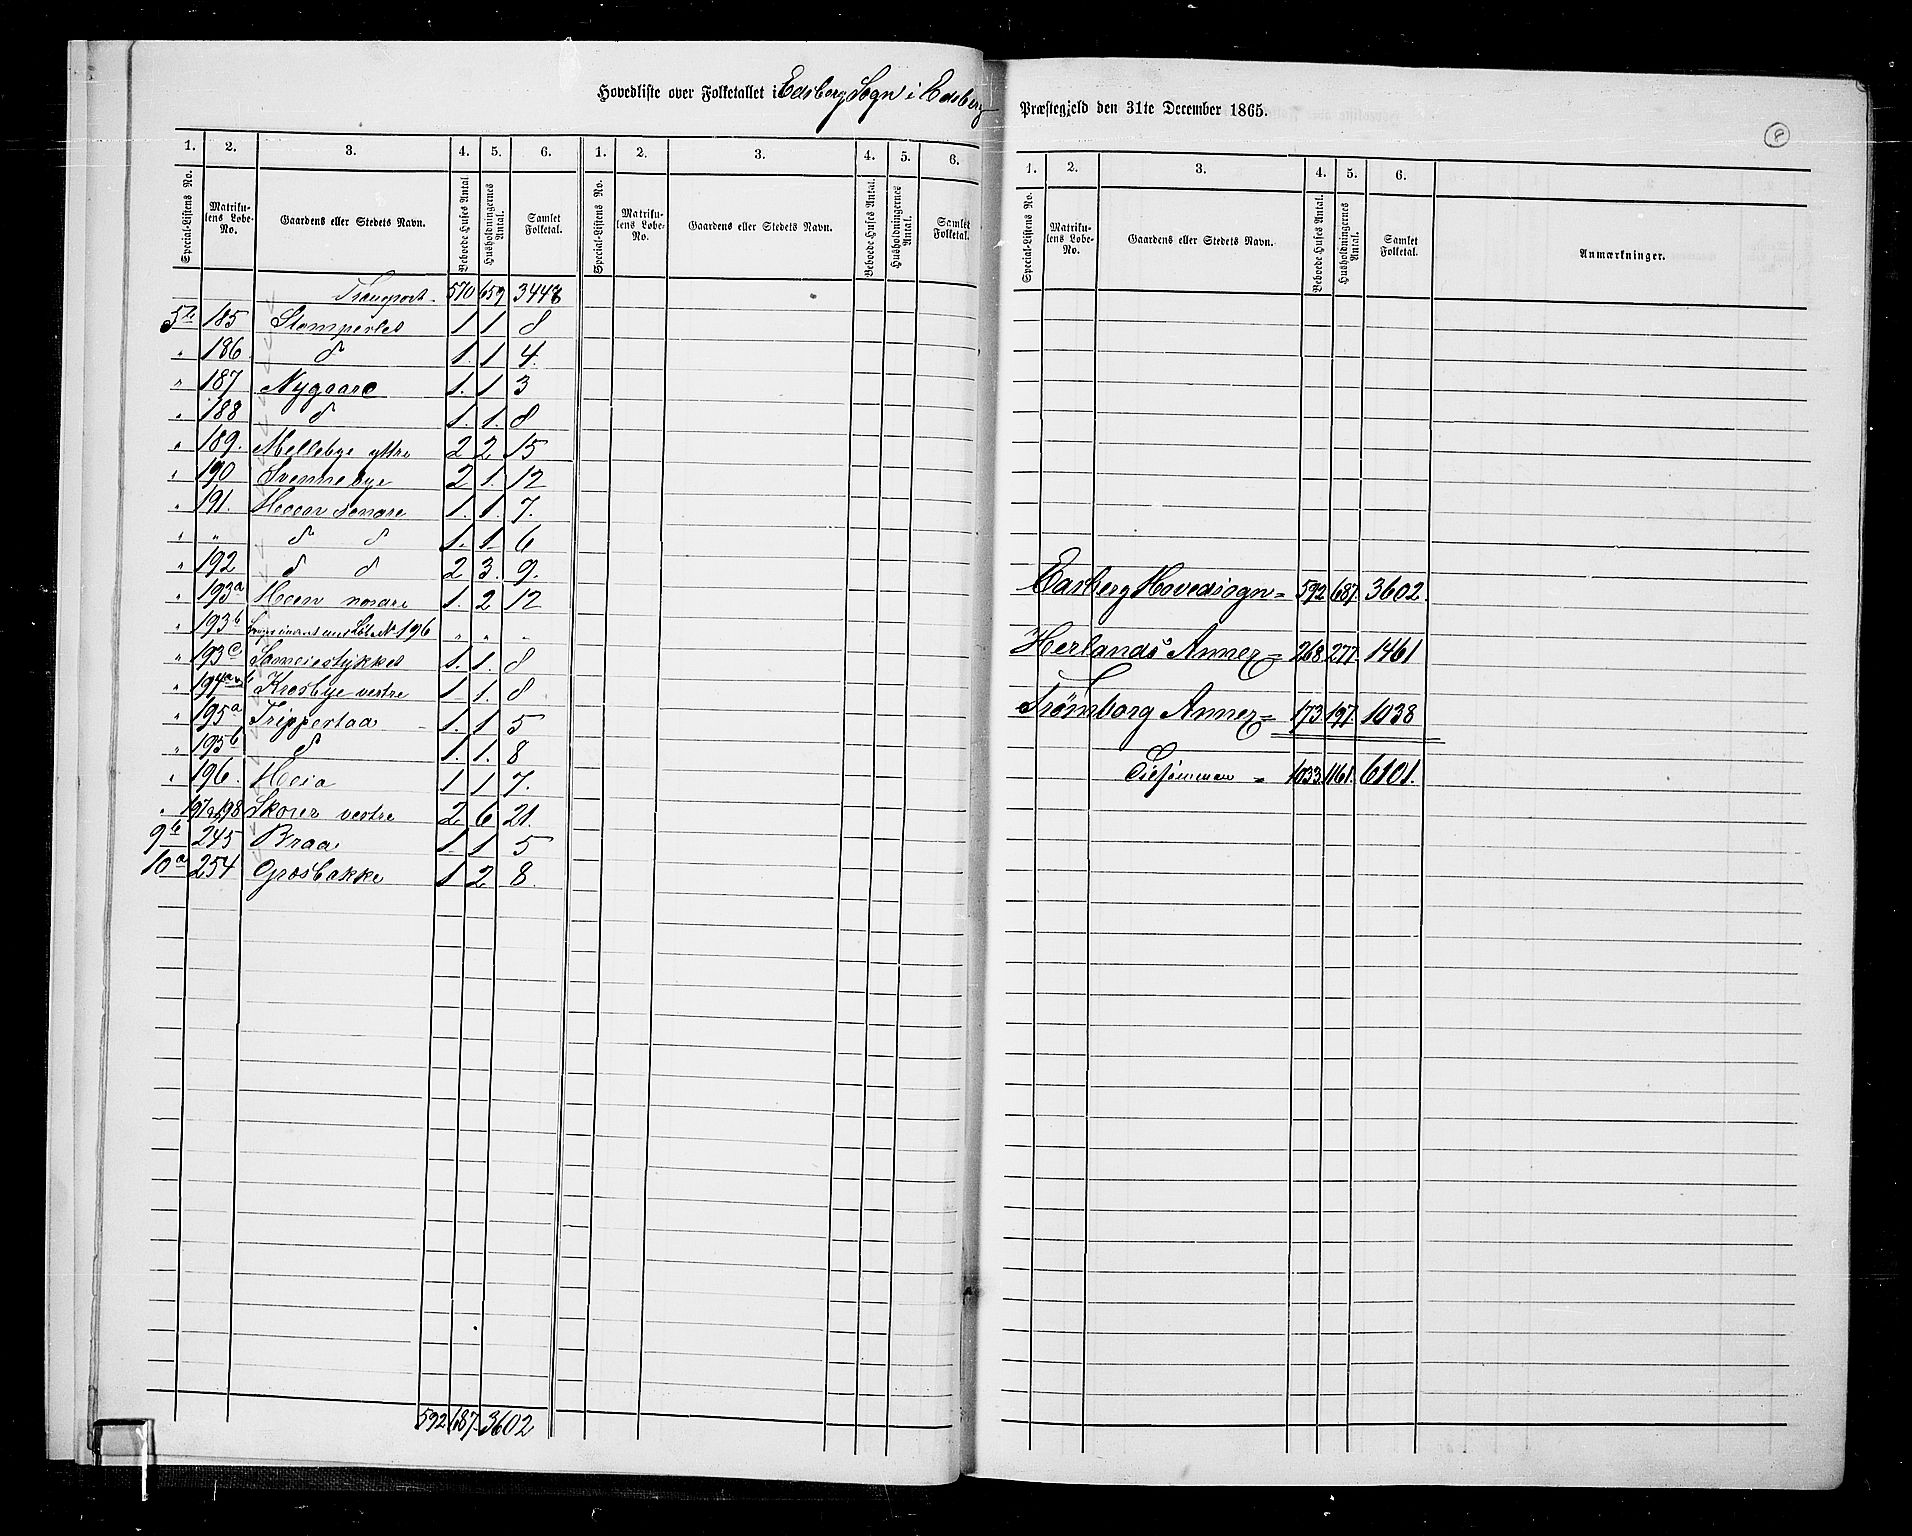 Hovedliste over Folketallet i Edsberg Sogn i Edsberg Præstegjeld den 31te December 1865.
8
1. 2. 3. 4. 5. 6. 1. 2. 3. 4. 5. 6.
Special-Listens No. Matrikulens Løbe-No. Gaardens eller Stedets Navn. Beboede Huses Antal. Husholdningernes Antal. Samlet Folketal. Special-Listens No. Matrikulens Løbe-No. Gaardens eller Stedets Navn. Beboede Huses Antal. Husholdningernes Antal. Samlet Folketal.
Transport 570 659 3448
5te 185 Stomperud 1 1 8
" 186 d 1. 1 4.
" 187 Nygaard 1. 1 3
" 188 d 1. 1. 8
" 189. Mellebye yttre 2 2 15
" 190 Svennebye 2 1. 12
" 191. Hoeen søndre 1. 1. 7.
" " d d 1. 1. 6
" 192 d d 2 3. 9.
" 193a Hoen nordre 1. 2 12
" 193b 196 " " "
" 193c Sameiestykket 1. 1. 8
" 194 Krosbye vestre 1 1. 8
" 195a Trippestaa 1. 1 5
" 195b d 1. 1. 8
" 196. Heia 1 1 7.
" 197 198 Skoier vestre 2 6 21.
9te 245 Braa 1 1 5
10a 254 Græsbakke 1 2 8.
592 687. 3602
1. 2. 3. 4. 5. 6.
Special-Listens No. Matrikulens Løbe-No. Gaardens eller Stedets Navn. Beboede Huses Antal. Husholdningernes Antal. Samlet Folketal. Anmærkninger.
Edsberg Hovedsogn = 592 687. 3602.
Herlands Annex = 268 277. 1461
Trømborg Annex = 173 197. 1038
Tilsammen = 1033. 1161. 6101.